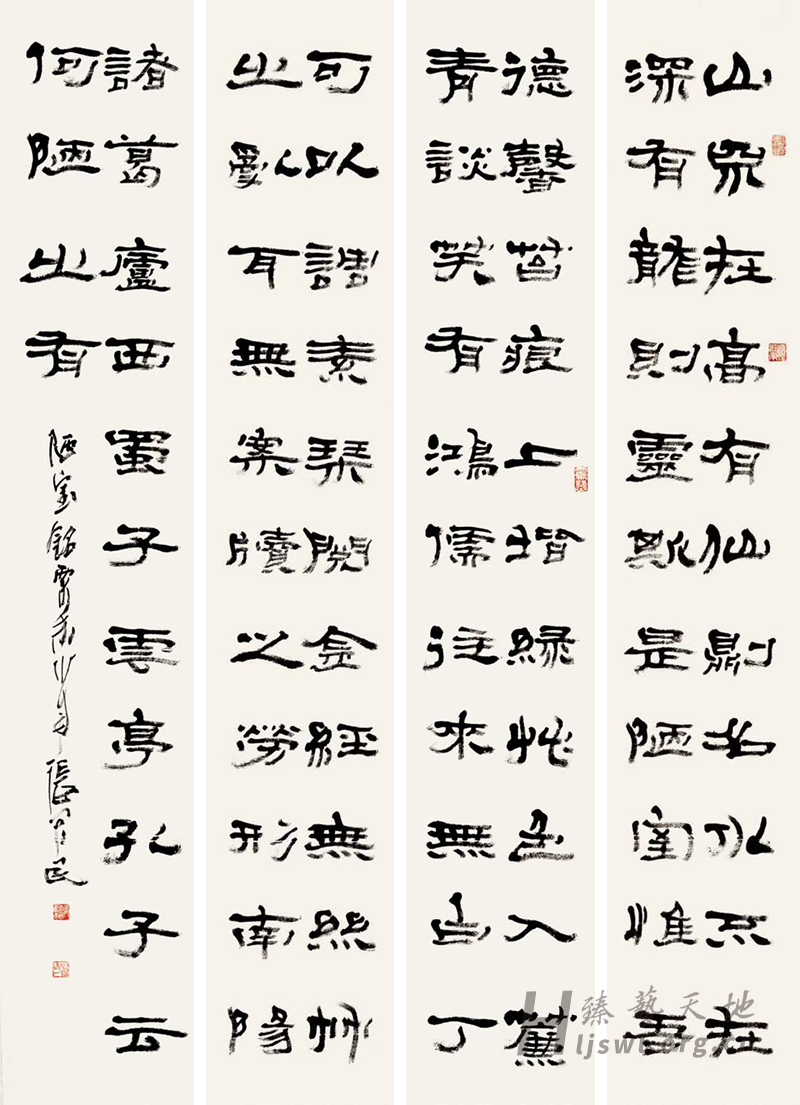 山不在高有仙則名水不在
深有龍則靈斯是陋室惟吾
德馨苔痕上階綠草色入簾
青談笑有鴻儒往來無白丁
可以調素琴閱金經無絲竹
之亂耳無案牘之勞形南陽
諸葛廬西蜀子雲亭孔子云
何陋之有
陋室銘 張
臻藝天地